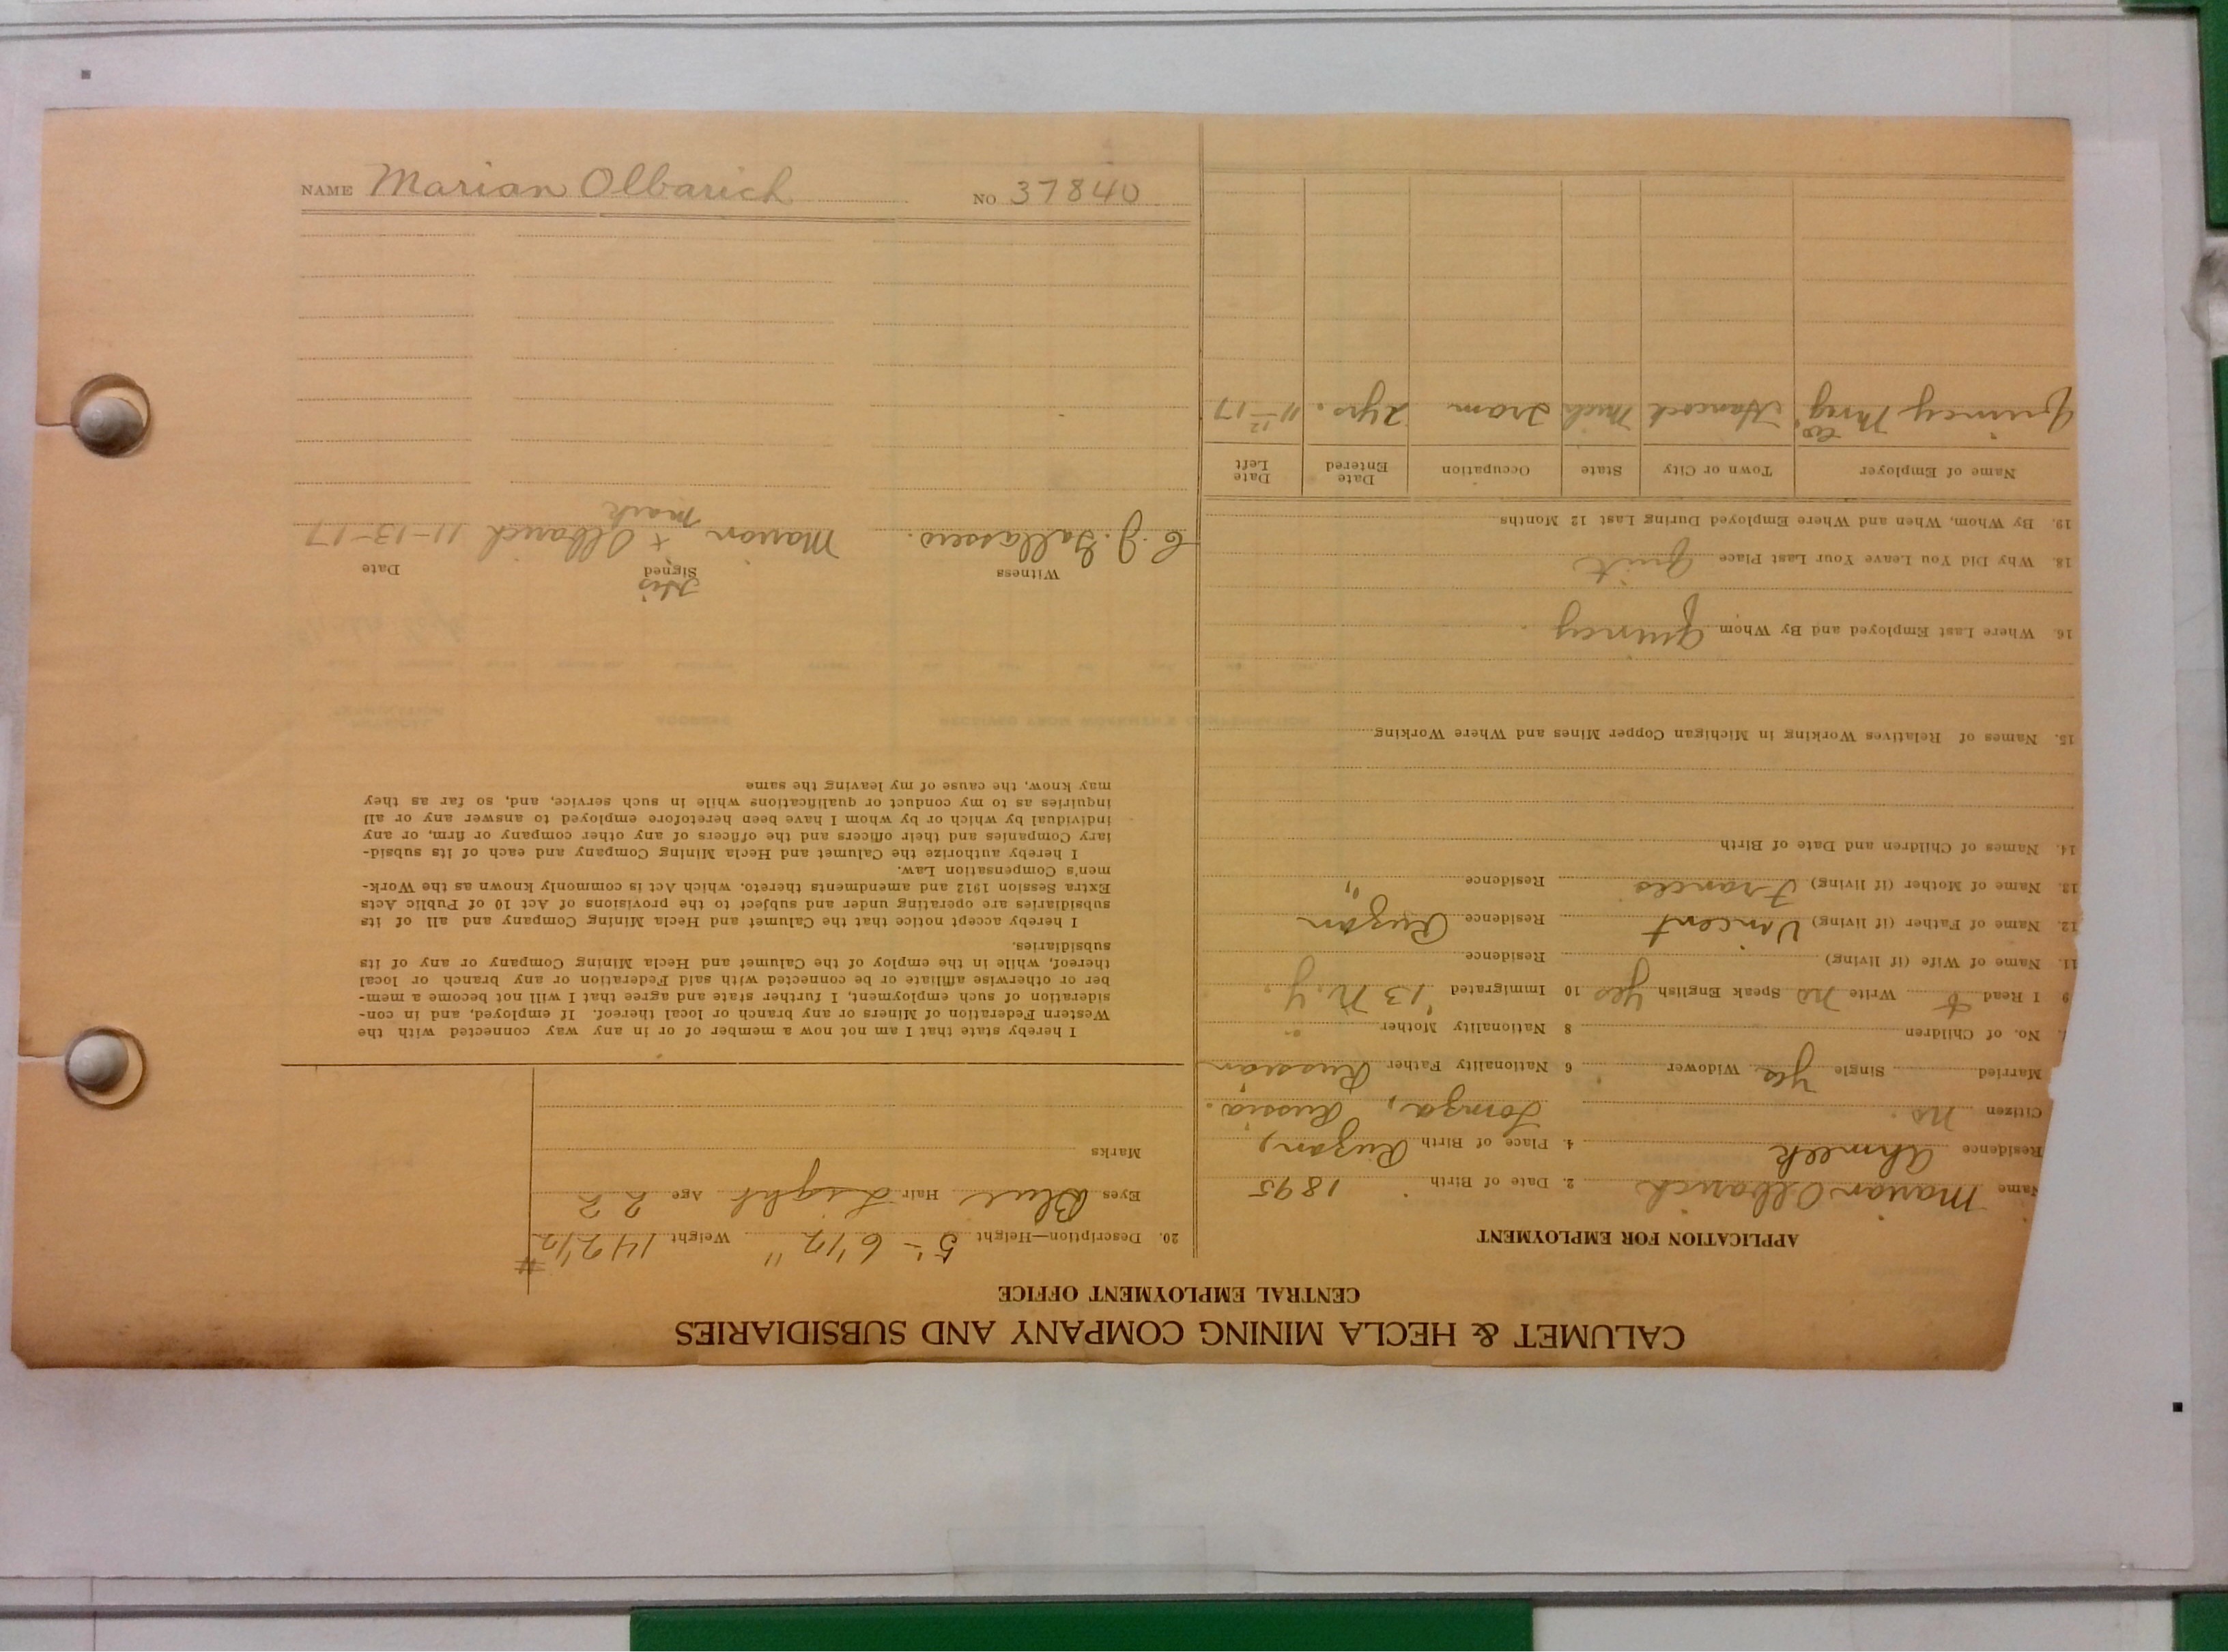 CALUMET & HECLA MINING COMPANY AND SUBSIDIARIES
CENTRAL EMPLOYMENT OFFICE
APPLICATION FOR EMPLOYMENT
Name Marian Olbarich 2. Date of Birth 1895
Residence Ahmeek 4. Place of Birth Ruzan,
Citizen no. Lomza, Russia.
Married Single yes Widower 6 Nationality Father Russian
No. of Children 8 Nationality Mother "
9 I Read & Write no Speak English yes 10 Immigrated '13 N.Y.
11. Name of Wife (if living) Residence
12. Name of Father (if living) Vincent Residence Ruzan
13. Name of Mother (if living) Frances Residence "
14. Names of Children and Date of Birth
15. Names of Relatives Working in Michigan Copper Mines and Where Working
16. Where Last Employed and By Whom Quincy.
18. Why Did You Leave Your Last Place quit
19. By Whom, When and Where Employed During Last 12 Months
Name of Employer Town or City State Occupation Date Entered Date Left
Quincy Mng Co. Hancock Mich Tram 2 yrs. 11-12-17
20. Description—Height 5'-6 1/2" Weight 142 1/2 #
Eyes Blue Hair Light Age 22
Marks
I hereby state that I am not now a member of or in any way connected with the
Western Federation of Miners or any branch or local thereof. If employed, and in con-
sideration of such employment, I further state and agree that I will not become a mem-
ber or otherwise affiliate or be connected with said Federation or any branch or local
thereof, while in the employ of the Calumet and Hecla Mining Company or any of its
subsidiaries.
I hereby accept notice that the Calumet and Hecla Mining Company and all of its
subsidiaries are operating under and subject to the provisions of Act 10 of Public Acts
Extra Session 1912 and amendments thereto, which Act is commonly known as the Work-
men's Compensation Law.
I hereby authorize the Calumet and Hecla Mining Company and each of its subsid-
iary Companies and their officers and the officers of any other company or firm, or any
individual by which or by whom I have been heretofore employed to answer any or all
inquiries as to my conduct or qualifications while in such service, and, so far as they
may know, the cause of my leaving the same
Witness Signed Date
His
Marian x Olbarich 11-13-17
mark
NAME Marian Olbarich NO 37840